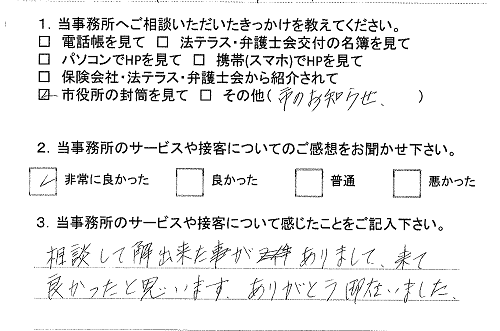 1. 当事務所へご相談いただいたきっかけを教えてください。
□ 電話帳を見て □ 法テラス・弁護士会交付の名簿を見て
□ パソコンでHPを見て □ 携帯(スマホ)でHPを見て
□ 保険会社・法テラス・弁護士会から紹介されて
☑ 市役所の封筒を見て □ その他( 市のお知らせ、 )
2. 当事務所のサービスや接客についてのご感想をお聞かせ下さい。
☑ 非常に良かった □ 良かった □ 普通 □ 悪かった
3. 当事務所のサービスや接客について感じたことをご記入下さい。
相談して解出来た事が ありまして、来て
良かったと思います。ありがとう御在いました。